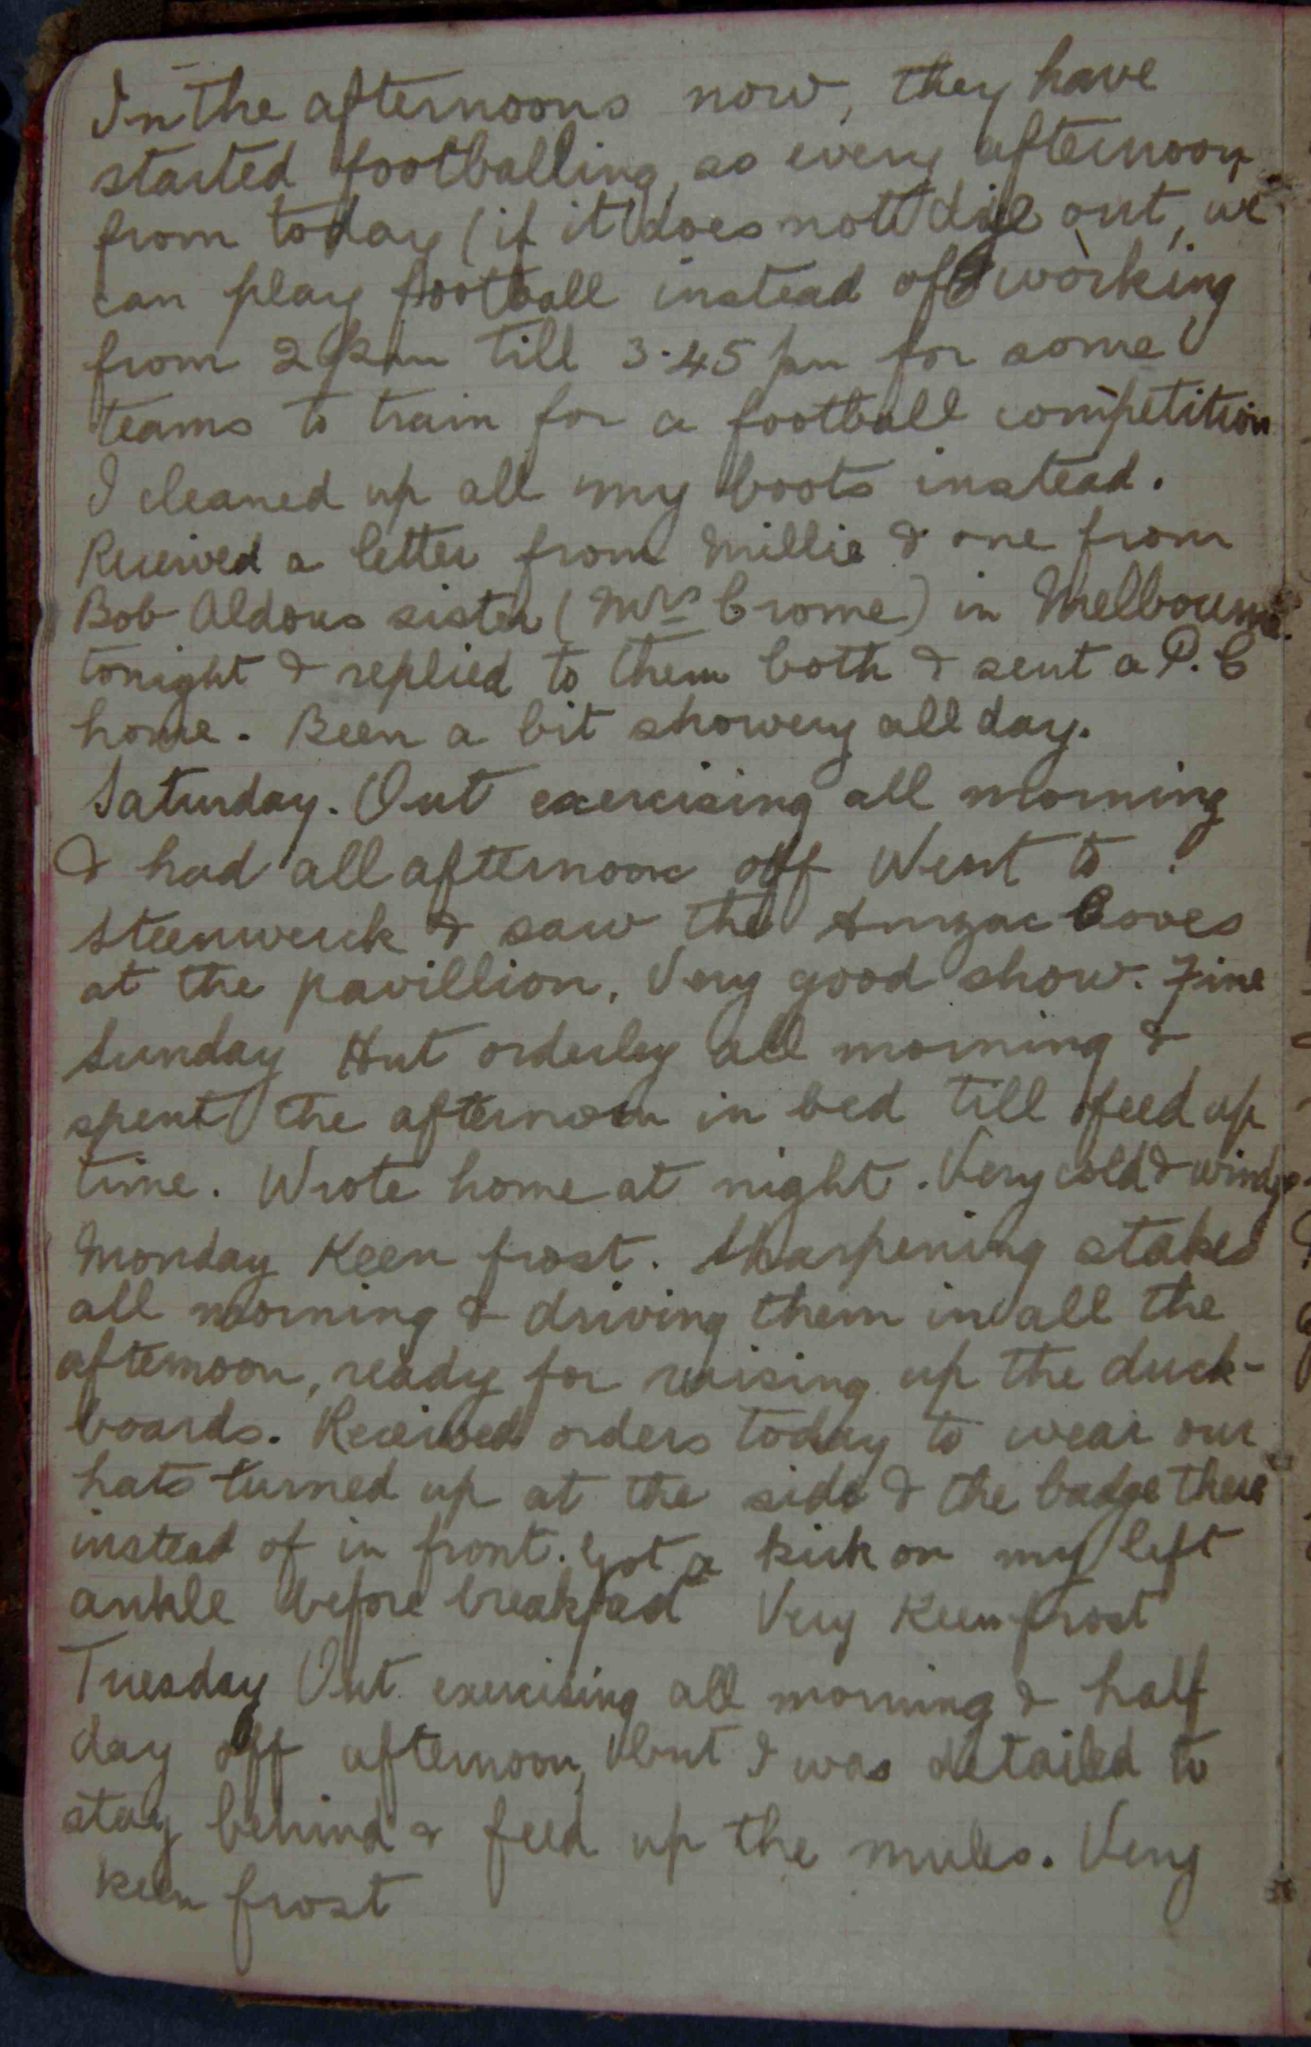 In the afternoons now, they have
started footballing, so every afternoon
from today (if it does not die out, we
can play football instead of working
from 2 pm till 3.45 pm for some
teams to train for a football competition
I cleaned up all my boots instead.
Received a letter from Millie & one from
Bob Aldous sister (Mrs Crome) in Melbourne.
tonight & replied to them both & sent a P.C
home. Been a bit showery all day.
Saturday. Out exercising all morning
& had all afternoon off Went to
Steenwerck & saw the Anzac Coves
at the pavillion. Very good show. Fine
Sunday Hut orderley all morning &
spent the afternoon in bed till feed up
time. Wrote home at night. Very cold & windy
Monday Keen frost. Sharpening stakes
all morning & driving them in all the
afternoon, ready for raising up the duck-
boards. Received orders today to wear our
hats turned up at the side & the badge there
instead of in front. Got a kick on my left
ankle before breakfast Very Keen frost
Tuesday Out exercising all morning & half
day off afternoon, but I was detailed to
stay behind & feed up the mules. Very
keen frost